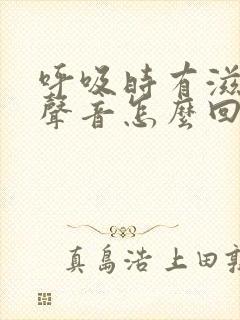 呼吸時有滋
聲音怎麼回
真島浩 上田敦